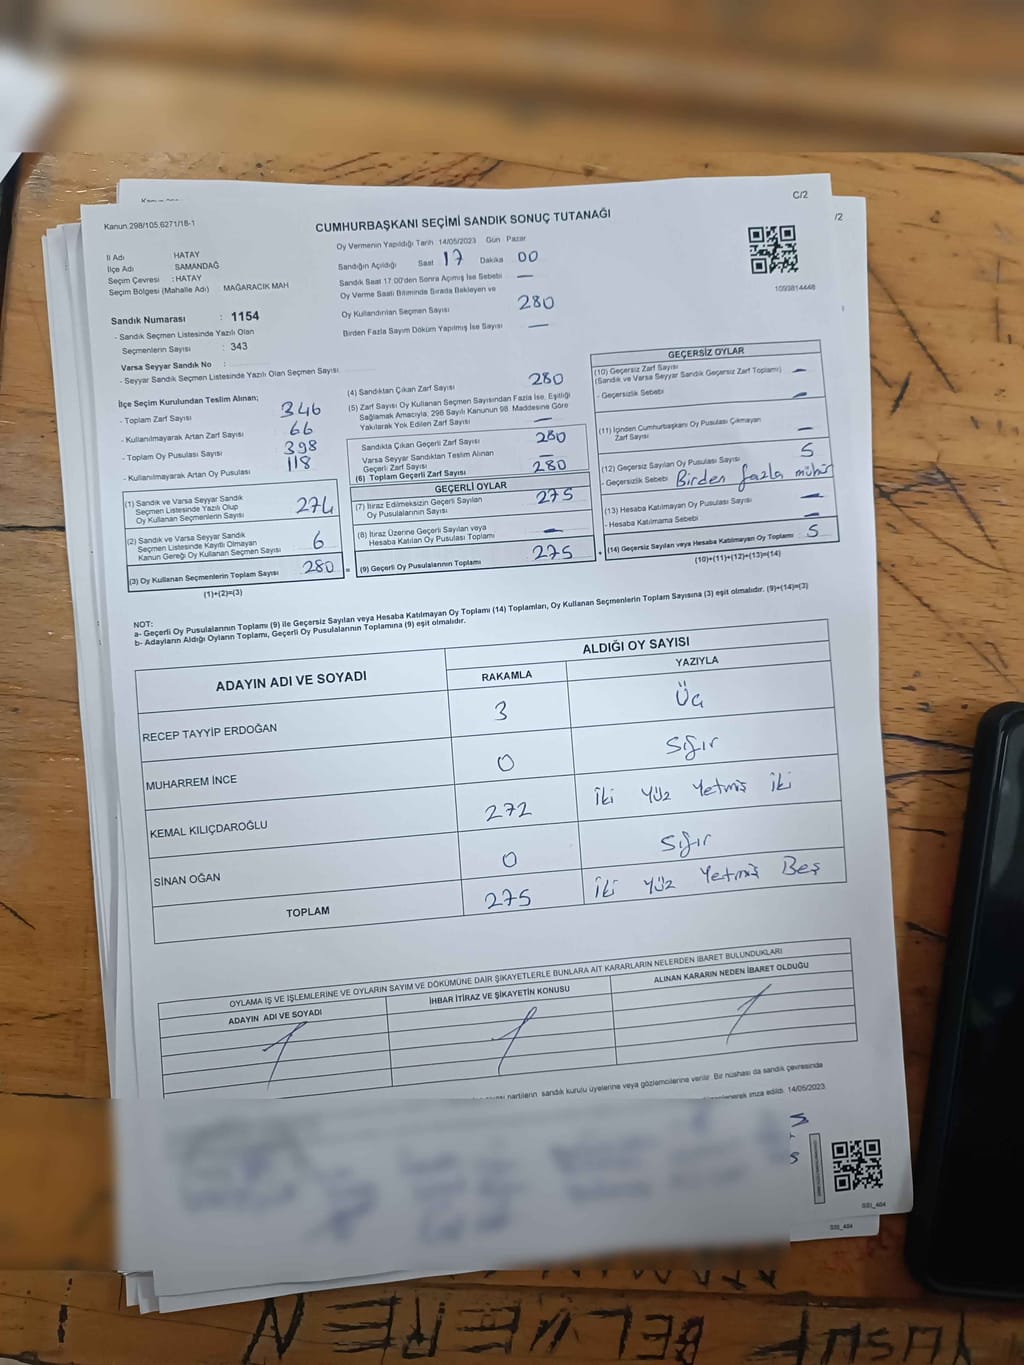 C/2
/2
Kanun.298/105.6271/18-1
CUMHURBAŞKANI SEÇİMİ SANDIK SONUÇ TUTANAĞI
İl Adı : HATAY
İlçe Adı : SAMANDAĞ
Seçim Çevresi : HATAY
Seçim Bölgesi (Mahalle Adı) : MAĞARACIK MAH
Sandık Numarası : 1154
- Sandık Seçmen Listesinde Yazılı Olan
Seçmenlerin Sayısı : 343
Varsa Seyyar Sandık No :
- Seyyar Sandık Seçmen Listesinde Yazılı Olan Seçmen Sayısı
Oy Vermenin Yapıldığı Tarih 14/05/2023 Gün : Pazar
Sandığın Açıldığı Saat 17 Dakika 00
Sandık Saat 17:00'den Sonra Açımış İse Sebebi —
Oy Verme Saati Bitiminde Sırada Bekleyen ve
Oy Kullandırılan Seçmen Sayısı 280
Birden Fazla Sayım Döküm Yapılmış İse Sayısı —
1093814448
İlçe Seçim Kurulundan Teslim Alınan;
- Toplam Zarf Sayısı 346
- Kullanılmayarak Artan Zarf Sayısı 66
- Toplam Oy Pusulası Sayısı 398
- Kullanılmayarak Artan Oy Pusulası 118
(1) Sandık ve Varsa Seyyar Sandık
Seçmen Listesinde Yazılı Olup
Oy Kullanan Seçmenlerin Sayısı 274
(2) Sandık ve Varsa Seyyar Sandık
Seçmen Listesinde Kayıtlı Olmayan
Kanun Gereği Oy Kullanan Seçmen Sayısı 6
(3) Oy Kullanan Seçmenlerin Toplam Sayısı 280
(1)+(2)=(3)
(4) Sandıktan Çıkan Zarf Sayısı 280
(5) Zarf Sayısı Oy Kullanan Seçmen Sayısından Fazla İse, Eşitliği
Sağlamak Amacıyla, 298 Sayılı Kanunun 98. Maddesine Göre
Yakılarak Yok Edilen Zarf Sayısı —
Sandıkta Çıkan Geçerli Zarf Sayısı 280
Varsa Seyyar Sandıktan Teslim Alınan
Geçerli Zarf Sayısı —
(6) Toplam Geçerli Zarf Sayısı 280
GEÇERLİ OYLAR
(7) İtiraz Edilmeksizin Geçerli Sayılan
Oy Pusulalarının Sayısı 275
(8) İtiraz Üzerine Geçerli Sayılan veya
Hesaba Katılan Oy Pusulası Toplamı —
= (9) Geçerli Oy Pusulalarının Toplamı 275
GEÇERSİZ OYLAR
(10) Geçersiz Zarf Sayısı
(Sandık ve Varsa Seyyar Sandık Geçersiz Zarf Toplamı) —
- Geçersizlik Sebebi —
(11) İçinden Cumhurbaşkanı Oy Pusulası Çıkmayan
Zarf Sayısı —
(12) Geçersiz Sayılan Oy Pusulası Sayısı 5
- Geçersizlik Sebebi Birden fazla mühür
(13) Hesaba Katılmayan Oy Pusulası Sayısı —
- Hesaba Katılmama Sebebi —
+ (14) Geçersiz Sayılan veya Hesaba Katılmayan Oy Toplamı 5
(10)+(11)+(12)+(13)=(14)
NOT:
a- Geçerli Oy Pusulalarının Toplamı (9) ile Geçersiz Sayılan veya Hesaba Katılmayan Oy Toplamı (14) Toplamları, Oy Kullanan Seçmenlerin Toplam Sayısına (3) eşit olmalıdır. (9)+(14)=(3)
b- Adayların Aldığı Oyların Toplamı, Geçerli Oy Pusulalarının Toplamına (9) eşit olmalıdır.
ADAYIN ADI VE SOYADI ALDIĞI OY SAYISI
RAKAMLA YAZIYLA
RECEP TAYYİP ERDOĞAN 3 Üç
MUHARREM İNCE 0 Sıfır
KEMAL KILIÇDAROĞLU 272 İki Yüz Yetmiş İki
SİNAN OĞAN 0 Sıfır
TOPLAM 275 İki Yüz Yetmiş Beş
OYLAMA İŞ VE İŞLEMLERİNE VE OYLARIN SAYIM VE DÖKÜMÜNE DAİR ŞİKAYETLERLE BUNLARA AİT KARARLARIN NELERDEN İBARET BULUNDUKLARI
ADAYIN ADI VE SOYADI İHBAR İTİRAZ VE ŞİKAYETİN KONUSU ALINAN KARARIN NEDEN İBARET OLDUĞU
partilerin sandık kurulu üyelerine veya gözlemcilerine verilir. Bir nüshası da sandık çevresinde
imza edildi. 14/05/2023
SSI_404
SSI_404
YUSUF BELVEREN